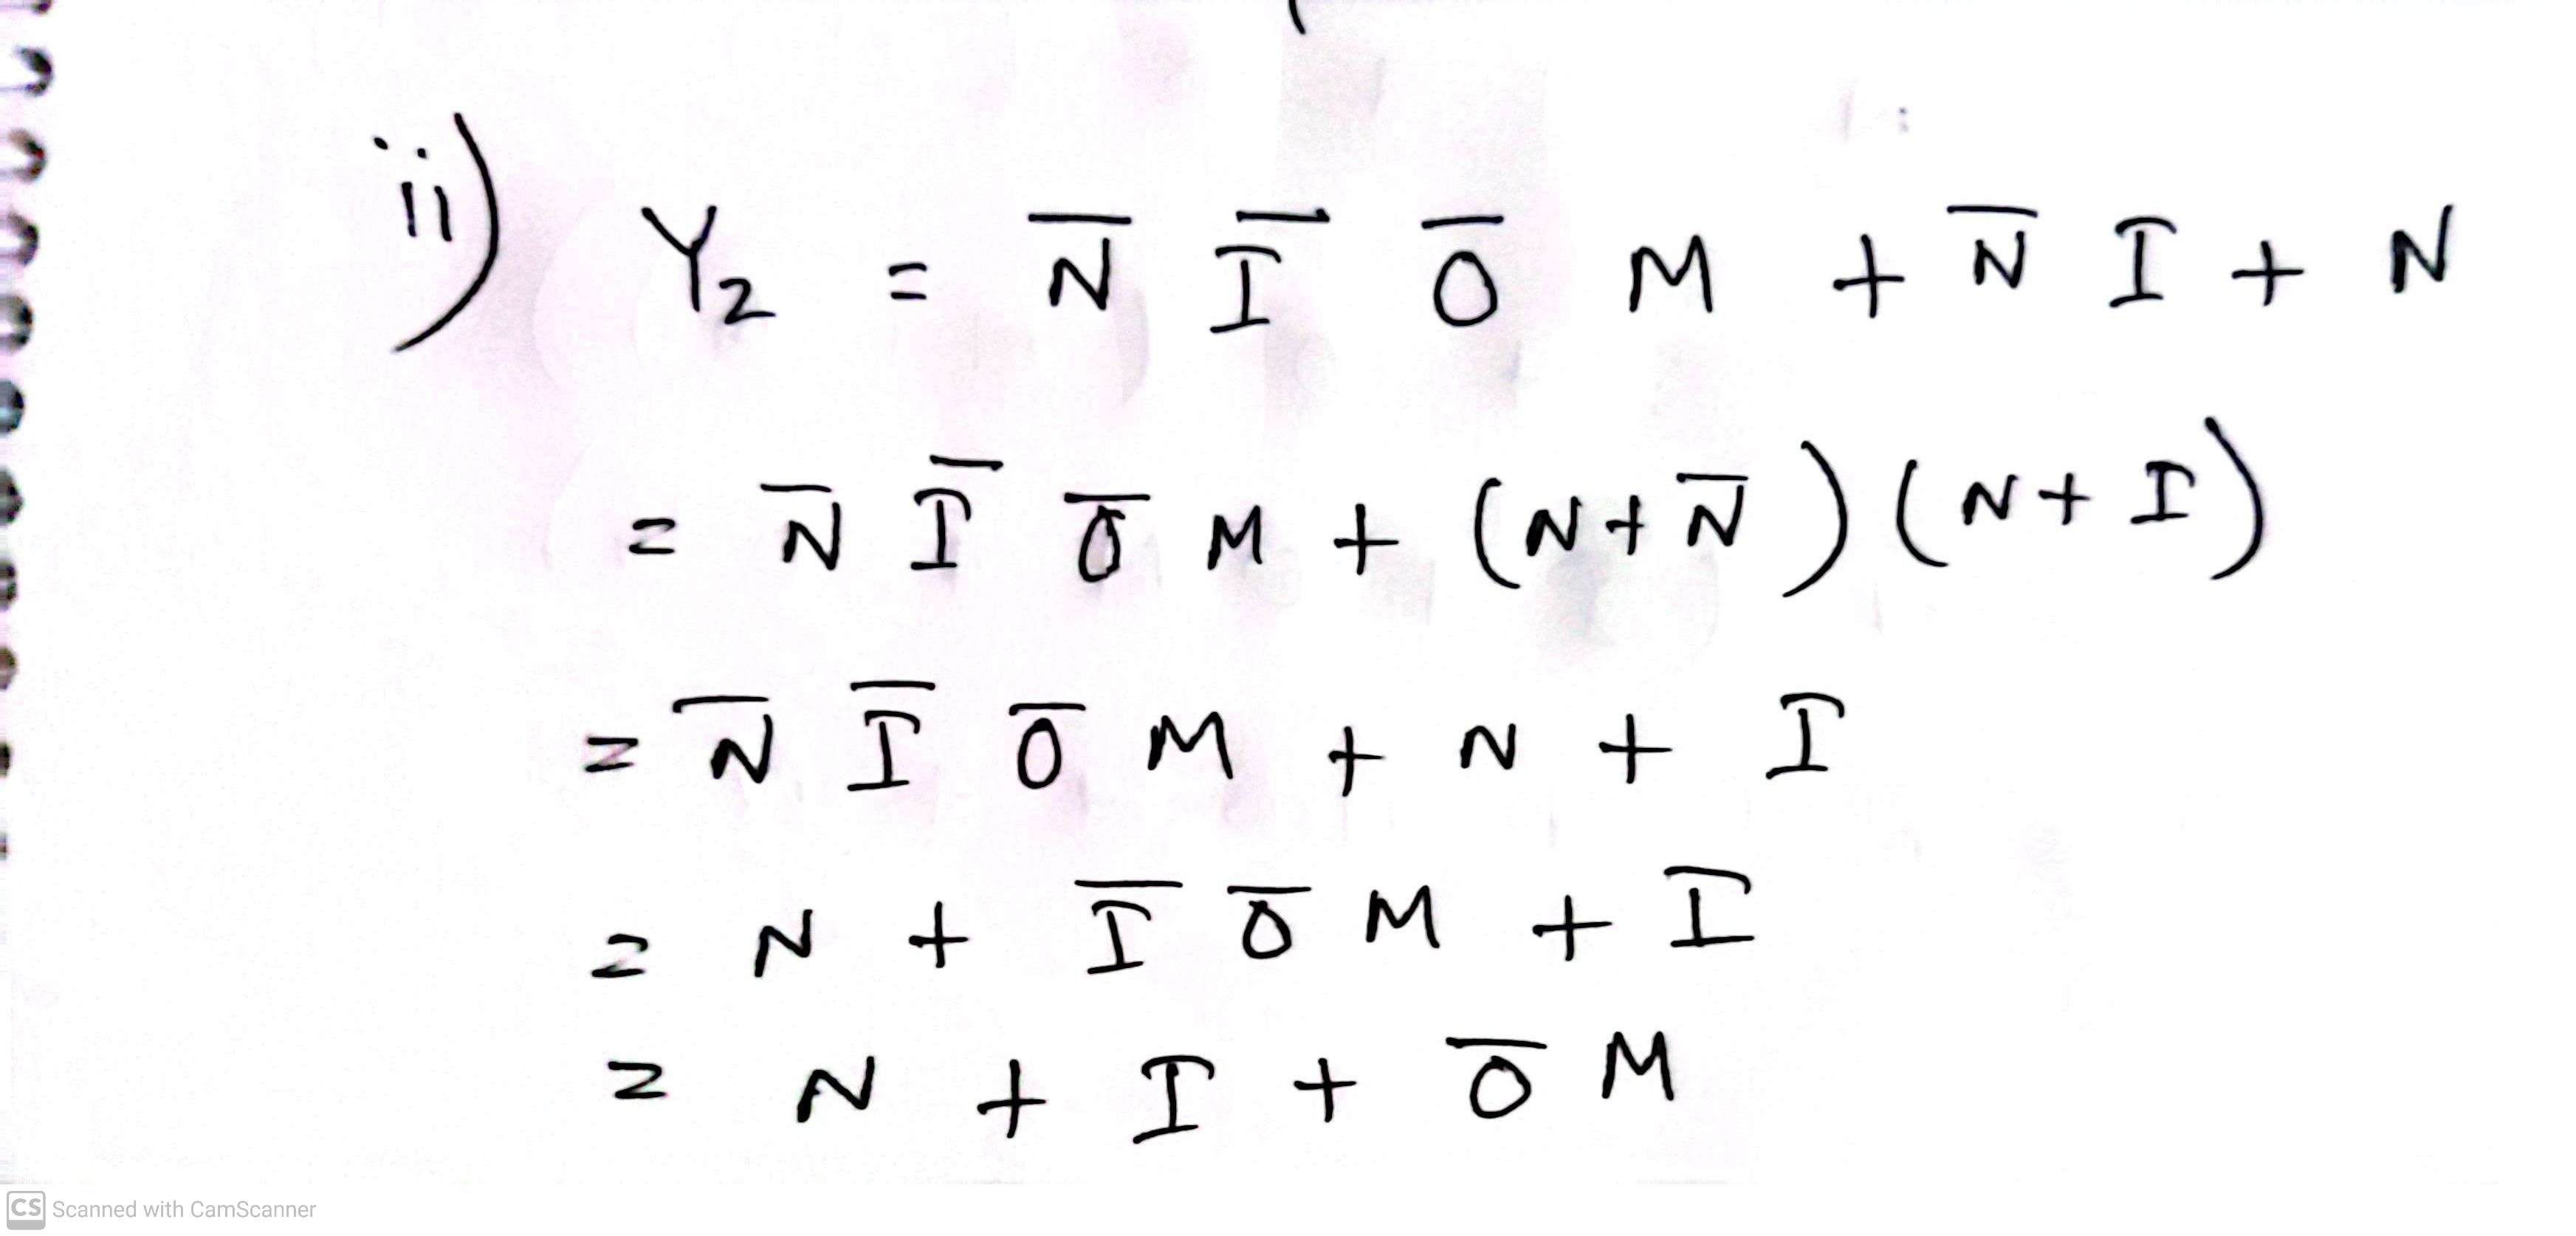 ii) Y₂ = N̅ I̅ O̅ M + N̅ I + N
= N̅ I̅ O̅ M + (N + N̅) (N + I)
= N̅ I̅ O̅ M + N + I
= N + I̅ O̅ M + I
= N + I + O̅ M
CS Scanned with CamScanner